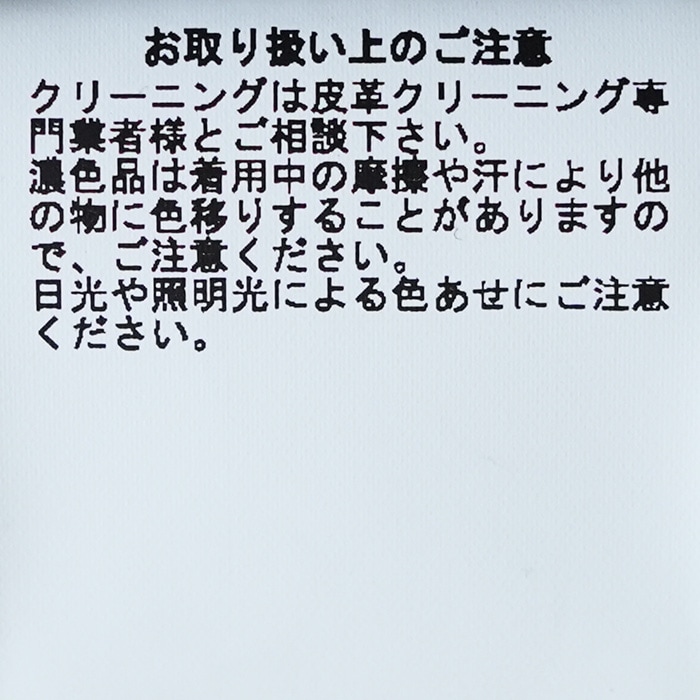 お取り扱い上のご注意
クリーニングは皮革クリーニング専
門業者様とご相談下さい。
濃色品は着用中の摩擦や汗により他
の物に色移りすることがありますの
で、ご注意ください。
日光や照明光による色あせにご注意
ください。